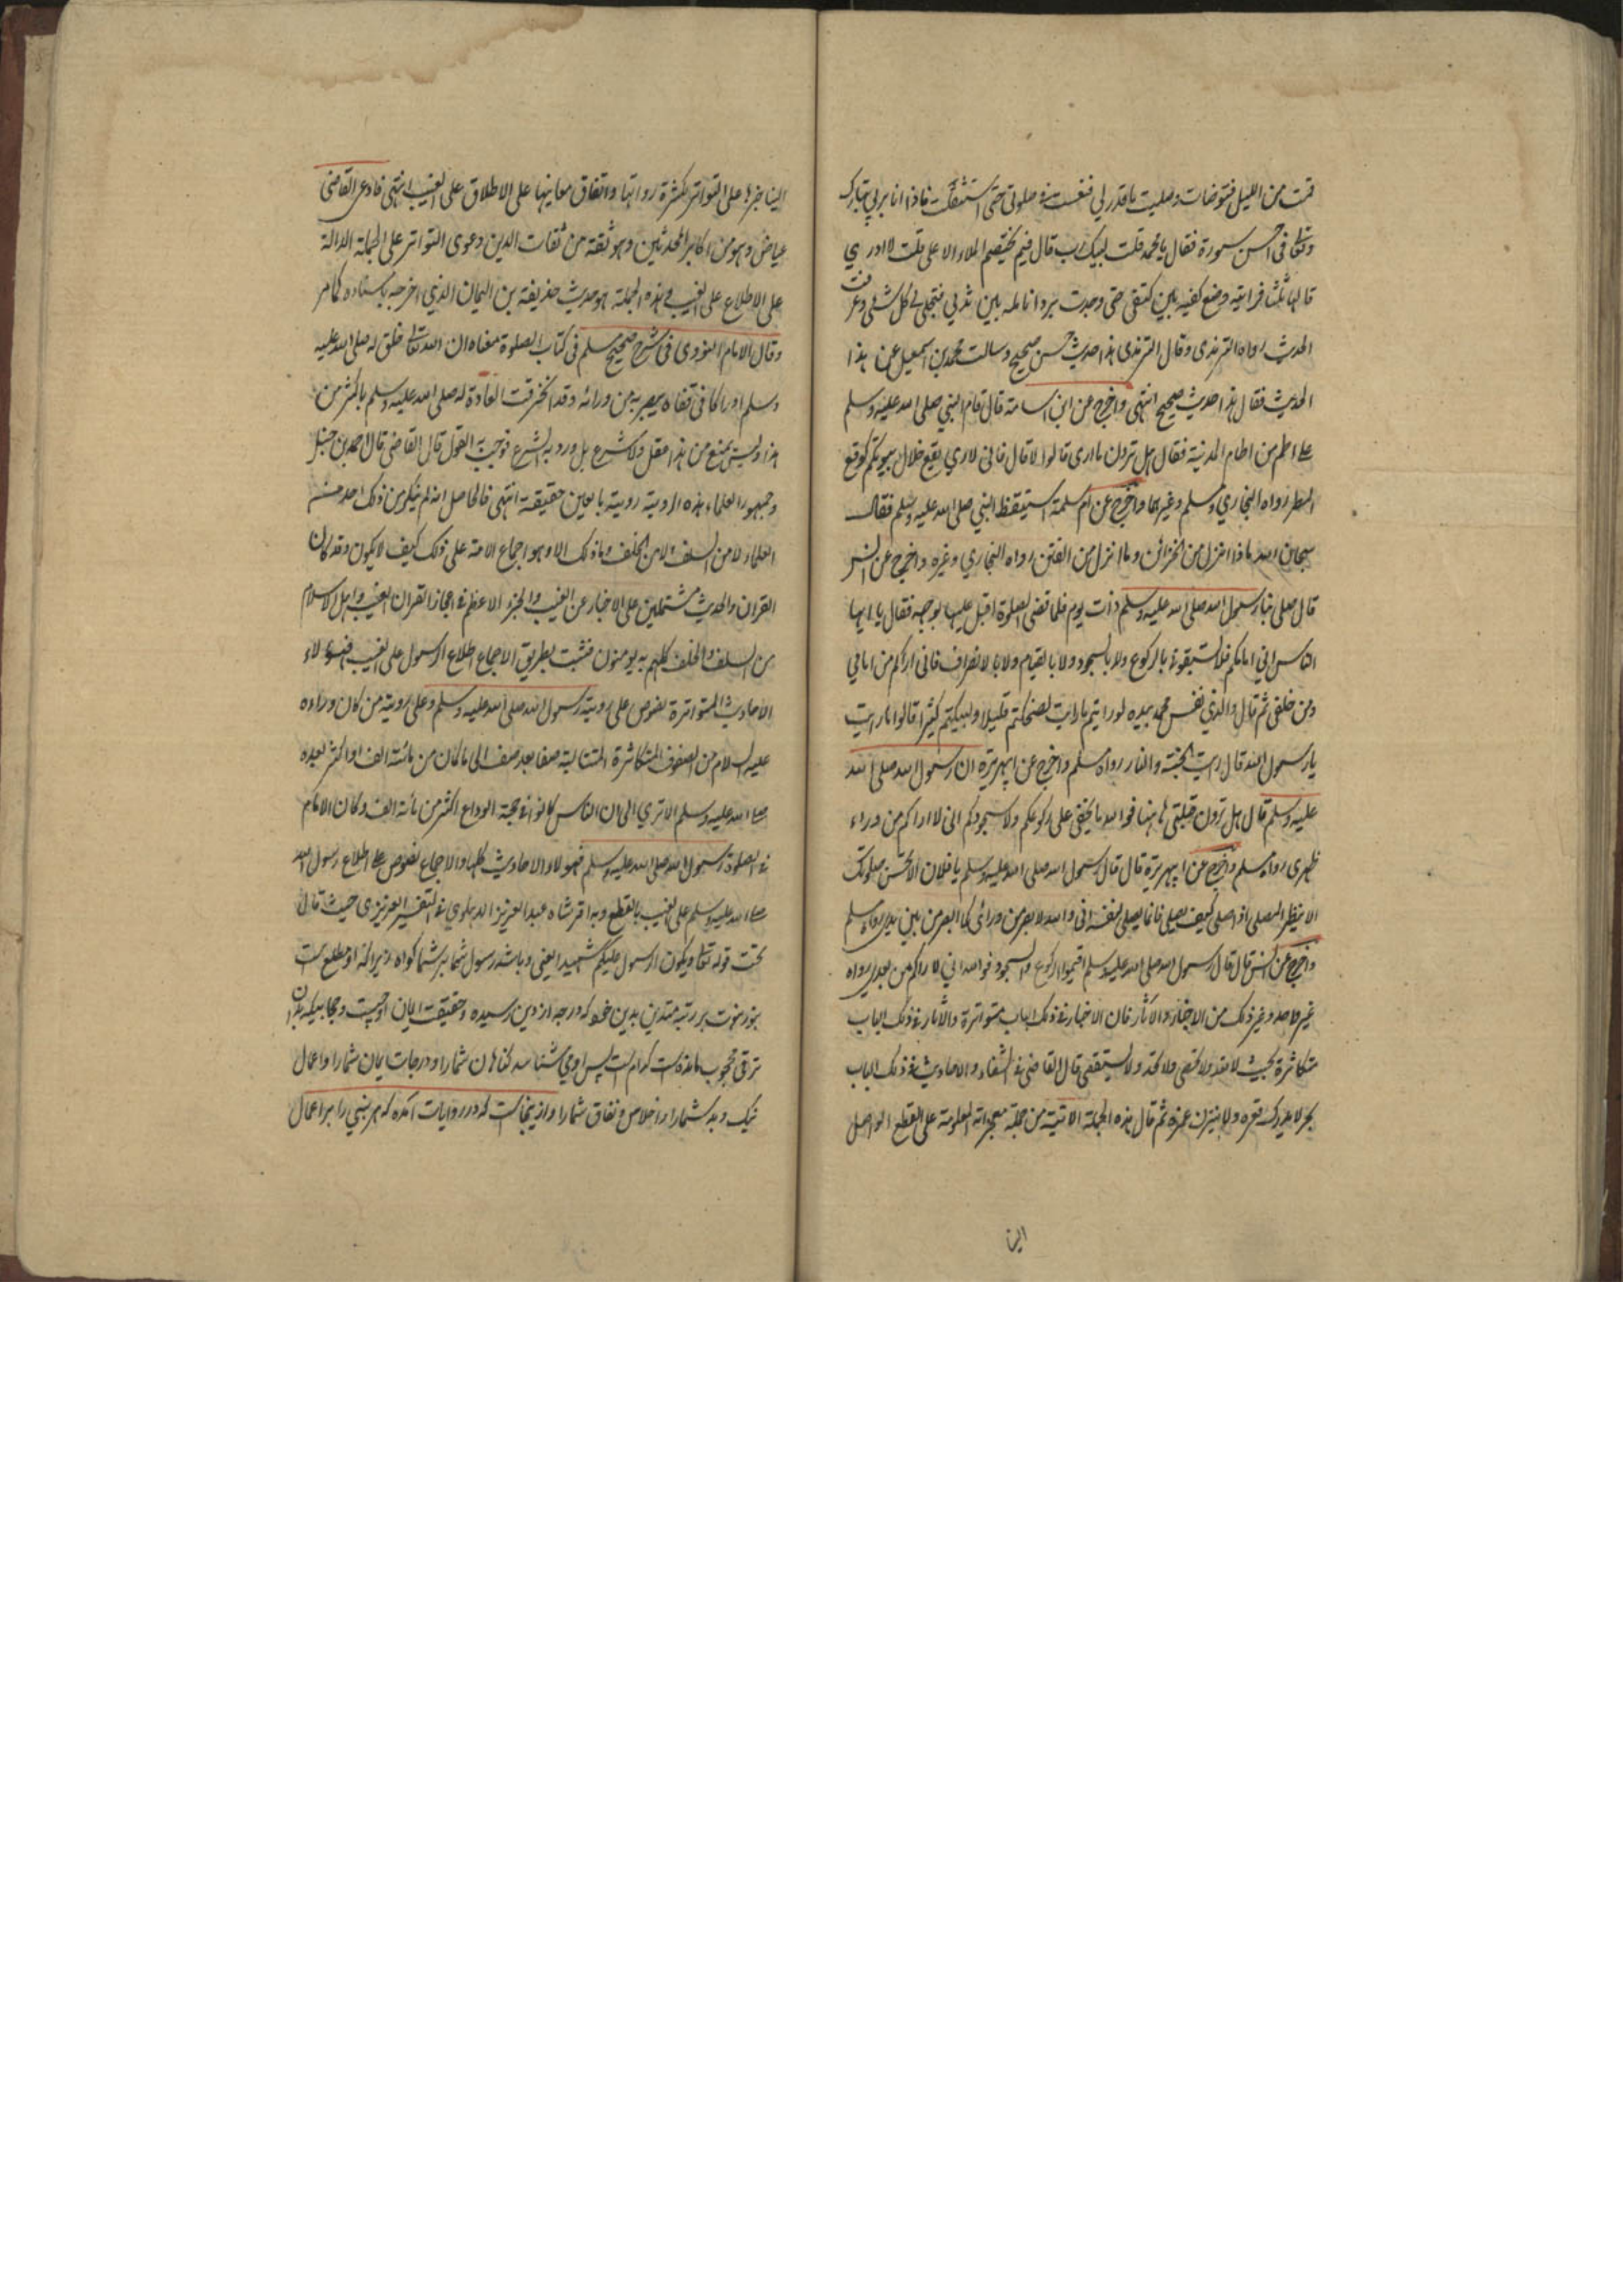 قمت من الليل فتوضات وصليت ما قدر لي فنعست في صلوتي حتى استثقلت فاذا انا بربي تبارك
وتعالى في احسن صورة فقال يا محمد قلت لبيك رب قال فيم يختصم الملاء الاعلى قلت لا ادري
قالها ثلثا فرايته وضع كفيه بين كتفي حتى وجدت برد انامله بين ثديي فتجلى لي كل شئ وعرفت
الحديث رواه الترمذي وقال الترمذي هذا حديث حسن صحيح وسالت محمد بن اسمعيل عن هذا
الحديث فقال هذا حديث صحيح انتهى واخرج عن ابن اسامة قال قام النبي صلى الله عليه وسلم
على اطم من اطام المدينة فقال هل ترون ما ارى قالوا لا قال فاني لاري يقع خلال بيوتكم كوقع
المطر رواه البخاري ومسلم وغيرهما واخرج عن ام سلمة استيقظ النبي صلى الله عليه وسلم فقال
سبحان الله ماذا انزل من الخزائن وما انزل من الفتن رواه البخاري وغيره واخرج عن انس
قال صلى بنا رسول الله صلى الله عليه وسلم ذات يوم فلما قضى الصلوة اقبل علينا بوجهه فقال يا ايها
الناس اني امامكم فلا تسبقوني بالركوع ولا بالسجود ولا بالقيام ولا بالانصراف فاني اراكم من امامي
ومن خلفي ثم قال والذي نفس محمد بيده لو رايتم ما رايت لضحكتم قليلا ولبكيتم كثيرا قالوا ما رايت
يا رسول الله قال رايت الجنة والنار رواه مسلم واخرج عن ابي هريرة ان رسول الله صلى الله
عليه وسلم قال هل ترون قبلتي هاهنا فوالله ما يخفى على ركوعكم ولا سجودكم اني لا اراكم من وراء
ظهري رواه مسلم واخرج عن ابي هريرة قال قال رسول الله صلى الله عليه وسلم يا فلان الا تحسن صلوتك
الا ينظر المصلي اذا صلى كيف يصلي فانما يصلي لنفسه اني والله لابصر من ورائي كما ابصر من بين يدي رواه مسلم
واخرج عن انس قال قال رسول الله صلى الله عليه وسلم اقيموا الركوع والسجود فوالله اني لاراكم من بعدي رواه
غير واحد وغير ذلك من الاخبار والاثار فان الاخبار في ذلك الباب متواترة والاثار في ذلك الباب
متكاثرة بحيث لا تعد ولا تحصى ولا تحد ولا تستقصى قال القاضي في الشفاء والاحاديث في ذلك الباب
بحر لا يدرك قعره ولا ينزف غمره ثم قال هذه الجملة الاتية من جملة معجزاته المعلومة على القطع الواصل
الينا
الينا خبرها على التواتر لكثرة رواتها واتفاق معانيها على الاطلاق على الغيب انتهى فادعى القاضي
عياض وهو من اكابر المحدثين وهو ثقة من ثقات الدين دعوى التواتر على الجملة الدالة
على الاطلاع على الغيب في هذه الجملة هو حديث حذيفة بن اليمان الذي اخرجه باسناده كما مر
وقال الامام النووي في شرح صحيح مسلم في كتاب الصلوة معناه ان الله تعالى خلق له صلى الله عليه
وسلم ادراكا في قفاه يبصر به من ورائه وقد انخرقت العادة له صلى الله عليه وسلم باكثر من
هذا وليس يمنع من هذا عقل ولا شرع بل ورد به الشرع فوجب القول قال القاضي قال احمد بن حنبل
وجمهور العلماء هذه الروية روية بالعين حقيقة انتهى فالحاصل انه لم ينكر من ذلك احد من
العلماء لا من السلف ولا من الخلف وما ذلك الا وهو اجماع الامة على ذلك كيف لا يكون وقد كان
القران والحديث مشتملين على الاخبار عن الغيب والجزء الاعظم في اعجاز القران الغيب واهل الاسلام
من السلف والخلف كلهم به يومنون فثبت بطريق الاجماع اطلاع الرسول على الغيب فهؤلاء
الاحاديث المتواترة نصوص على روية رسول الله صلى الله عليه وسلم وعلى روية من كان وراءه
عليه السلام من الصفوف المتكاثرة المتتالية صفا بعد صف الى ما كان من مائة الف او اكثر بعده
صلى الله عليه وسلم الا ترى الى ان الناس كانوا في حجة الوداع اكثر من مائة الف وكان الامام
في الصلوة رسول الله صلى الله عليه وسلم فهولاء الاحاديث كلها والاجماع نصوص على اطلاع رسول الله
صلى الله عليه وسلم على الغيب بالقطع وبه اقر شاه عبد العزيز الدهلوي في التفسير العزيزي حيث قال
تحت قوله تعالى ويكون الرسول عليكم شهيدا يعني وباشد رسول شما بر شما گواه زيرا كه او مطلع است
بنور نبوت بر رتبه هر متدين بدين خود كه در كدام درجه از دين رسيده وحقيقت ايمان او چيست وحجابيكه بدان
از ترقى محجوب مانده است كدام است پس او مى شناسد گناهان شما را ودرجات ايمان شما را واعمال
نيك وبد شما را واخلاص ونفاق شما را وازينجا است كه در روايات آمده كه هر نبي را بر اعمال